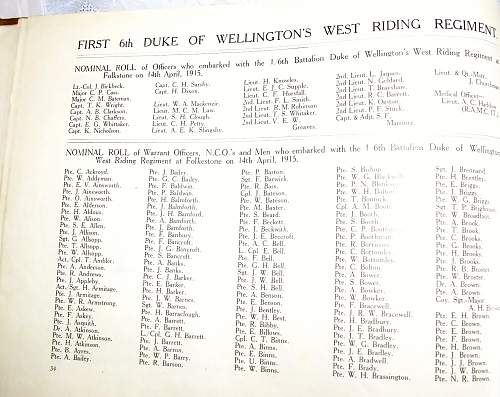 FIRST 6th DUKE OF WELLINGTON'S WEST RIDING REGIMENT.
NOMINAL ROLL of Officers who embarked with the 1/6th Battalion Duke of Wellington's West Riding Regiment at
Folkstone on 14th April, 1915.
Lt.-Col. J. Birkbeck.
Major C. P. Cass.
Major C. M. Bateman.
Capt. T. K. Wright.
Capt. A. B. Clarkson.
Capt. N. B. Chaffers.
Capt. E. G. Whittaker.
Capt. K. Nicholson.
Capt. C. H. Sarsby.
Capt. H. Dixon.
Lieut. W. A. Mackenzie.
Lieut. M. C. M. Law.
Lieut. S. H. Clough.
Lieut. C. H. Petty.
Lieut. A. E. K. Slingsby.
Lieut. H. Knowles.
Lieut. E. J. C. Supple.
Lieut. C. F. Horsfall.
2nd Lieut. F. L. Smith.
2nd Lieut. R. M. Robinson
2nd Lieut. T. S. Whitaker.
2nd Lieut. V. E. W.
Greaves.
2nd Lieut. L. Jaques.
2nd Lieut. N. Geldard.
2nd Lieut. T. Brayshaw.
2nd Lieut. R. C. Barrett.
2nd Lieut. K. Ogston
2nd Lieut. P. F. Stuck.
Capt. & Adjt. S. F.
Marriner.
Lieut. & Qr.-Mstr.
J. Churchman
Medical Officer:—
Lieut. A. C. Haddow
(R.A.M.C. T.)
NOMINAL ROLL of Warrant Officers, N.C.O.'s and Men who embarked with the 1/6th Battalion Duke of Wellington's
West Riding Regiment at Folkestone on 14th April, 1915.
Pte. C. Ackroyd.
Pte. W. Addyman.
Pte. E. V. Ainsworth.
Pte. J. Ainsworth.
Pte. O. Ainsworth.
Pte. E. Alderson.
Pte. H. Aldous.
Pte. W. Alison.
Pte. S. E. Allen.
Pte. J. Allison.
Sgt. G. Allsopp.
Pte. T. Allsopp.
Pte. W. Allsopp.
Act. Cpl. T. Ambler.
Pte. A. Anderson.
Pte. R. Andrews.
Pte. J. Appleby.
Act. Sgt. H. Armitage.
Pte. J. Armitage.
Pte. W. R. Armstrong.
Pte. E. Askew.
Pte. F. Askey.
Pte. J. Asquith.
Dr. A. Atkinson.
Pte. M. W. Atkinson.
Pte. H. Atkinson.
Pte. B. Ayres.
Pte. A. Bailey.
Pte. J. Bailey.
Pte. G. C. Bailey.
Pte. F. Baldwin.
Pte. P. Baldwin.
Pte. H. Balmforth.
Pte. J. Balmforth.
Pte. J. H. Bamford.
Pte. A. Bamforth.
Pte. J. Bamforth.
Pte. F. Banbury.
Pte. F. Bancroft.
Pte. J. G. Bancroft.
Pte. S. Bancroft.
Pte. A. Banks.
Pte. J. Banks.
Pte. C. J. Barker.
Pte. E. Barker.
Pte. H. Barker.
Pte. J. W. Barnes.
Sgt. W. Barnes.
Pte. H. Barraclough.
Pte. A. Barrett.
Pte. F. Barrett.
L. Cpl. G. H. Barrett.
Pte. J. Barrett.
Pte. A. Barron.
Pte. W. P. Barry.
Pte. R. Barson.
Pte. P. Barton.
Sgt. F. Barwick.
Pte. R. Bass.
Cpl. J. Bateson.
Pte. W. Bateson.
Pte. M. Baxter.
Pte. S. Beard.
Pte. F. Beckett.
Pte. J. Beckwith.
Pte. J. E. Beecroft.
Pte. A. C. Bell.
L. Cpl. E. Bell.
Pte. F. Bell.
Pte. G. H. Bell.
Sgt. J. W. Bell.
Pte. J. W. Bell.
Pte. S. H. Bell.
Pte. A. Benson.
Pte. E. Benson.
Pte. J. Bentley.
Pte. W. H. Best.
Pte. R. Bibby.
Pte. E. Billows.
Cpl. C. T. Binns.
Pte. A. Binns.
Pte. E. Binns.
Pte. U. Binns.
Pte. W. Binns.
Pte. S. Bishop
Pte. W. G.
Pte. P. N.
Pte. W. H.
Pte. T.
Cpl. A. M.
Pte. J. Booth.
Pte. S. Booth.
Pte. C. P.
Pte. P.
Pte. R.
Pte. C. Bottomley.
Pte. W. Bottomley.
Pte. C. Bolton.
Pte. A. Bower.
Pte. S. Bower.
Pte. W. Bowker.
Pte. F. Bracewell.
Pte. J. R. W. Bracewell.
Pte. H. Bradbury.
Pte. J. E. Bradbury.
Pte. J. T. Bradley.
Pte. W. G. Bradley.
Pte. J. E. Bradley.
Pte. A. Bradwell.
Pte. F. Brady.
Pte. W. H. Brassington.
Sgt. J. Brennand.
Pte. H. Brentley.
Pte. E. Briggs.
Pte. J. Briggs.
Pte. W. G. Briggs
Sgt. T. P. Brighton.
Pte. W. Broadbent.
Pte. A. Brook.
Pte. C. Brooks.
Pte. G. Brooks.
Pte. H. Brooks.
Pte. J. Brooks.
Pte. R. B. Broster
Pte. W. Broster.
Dr. A. Brown.
Pte. A. Brown.
Coy. Sgt.-Major
A. H. Brown
Pte. E. H. Brown.
Pte. C. Brown.
Pte. E. Brown.
Pte. F. Brown.
Pte. H. Brown.
Pte. J. Brown.
Pte. J. J. Brown.
Pte. J. W. Brown.
Pte. N. R. Brown.
54